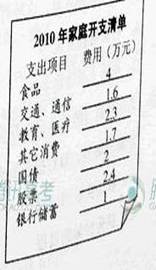 2010年家庭开支清单
支出项目 费用（万元）
食品 4
交通、通信 1.6
教育、医疗 2.3
其它消费 1.7
国债 2
股票 2.4
银行储蓄 1